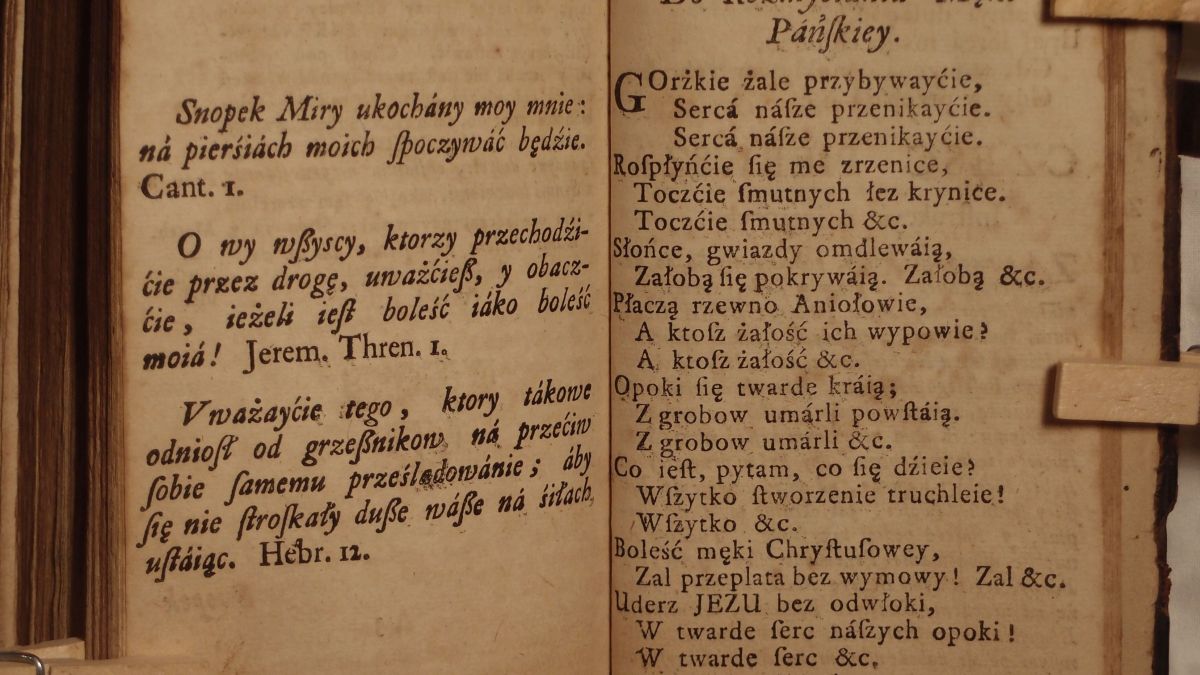 Snopek Miry ukochány moy mnie:
ná pierśiách moich ſpoczywáć będźie.
Cant. 1.
O wy wßyscy, ktorzy przechodźi-
ćie przez drogę, uważćieß, y obacz-
ćie, ieżeli ieſt boleść iáko boleść
moiá! Jerem. Thren. 1.
Vważayćie tego, ktory tákowe
odnioſł od grzeßnikow ná przećiw
ſobie ſamemu prześladowánie; áby
ſię nie ſtroſkały duße wáße ná śiłach
uſtáiąc. Hebr. 12.
Páńſkiey.
GOrżkie żale przybywayćie,
Sercá náſze przenikayćie.
Sercá náſze przenikayćie.
Roſpłyńćie ſię me zrzenice,
Toczćie ſmutnych łez krynice.
Toczćie ſmutnych &c.
Słońce, gwiazdy omdlewáią,
Załobą ſię pokrywáią. Załobą &c.
Płaczą rzewno Aniołowie,
A ktoſz żałość ich wypowie?
A ktoſz żałość &c.
Opoki ſię twarde kráią;
Z grobow umárli powſtáią.
Z grobow umárli &c.
Co ieſt, pytam, co ſię dźieie?
Wſzytko ſtworzenie truchleie!
Wſzytko &c.
Boleść męki Chryſtuſowey,
Zal przeplata bez wymowy! Zal &c.
Uderz JEZU bez odwłoki,
W twarde ſerc náſzych opoki!
W twarde ſerc &c.